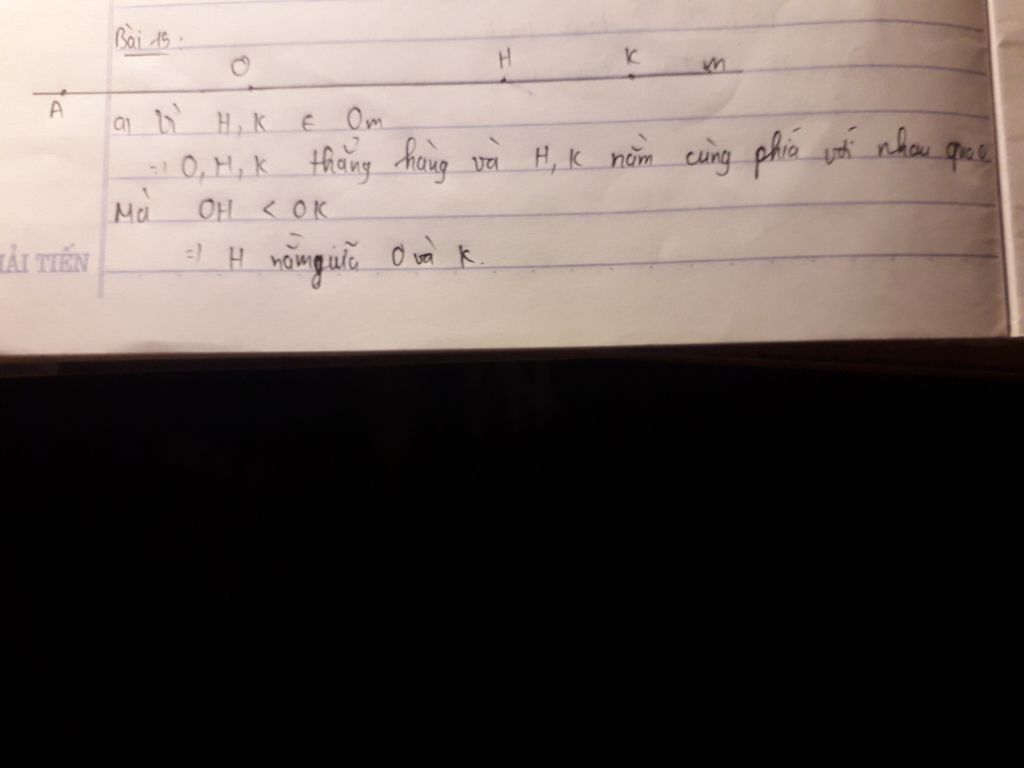 Bài 15:
O H K m
A
a, Vì H, K ∈ Om
=> O, H, K thẳng hàng và H, K nằm cùng phía với nhau qua
Mà OH < OK
=> H nằm giữa O và K.
IẢI TIẾN